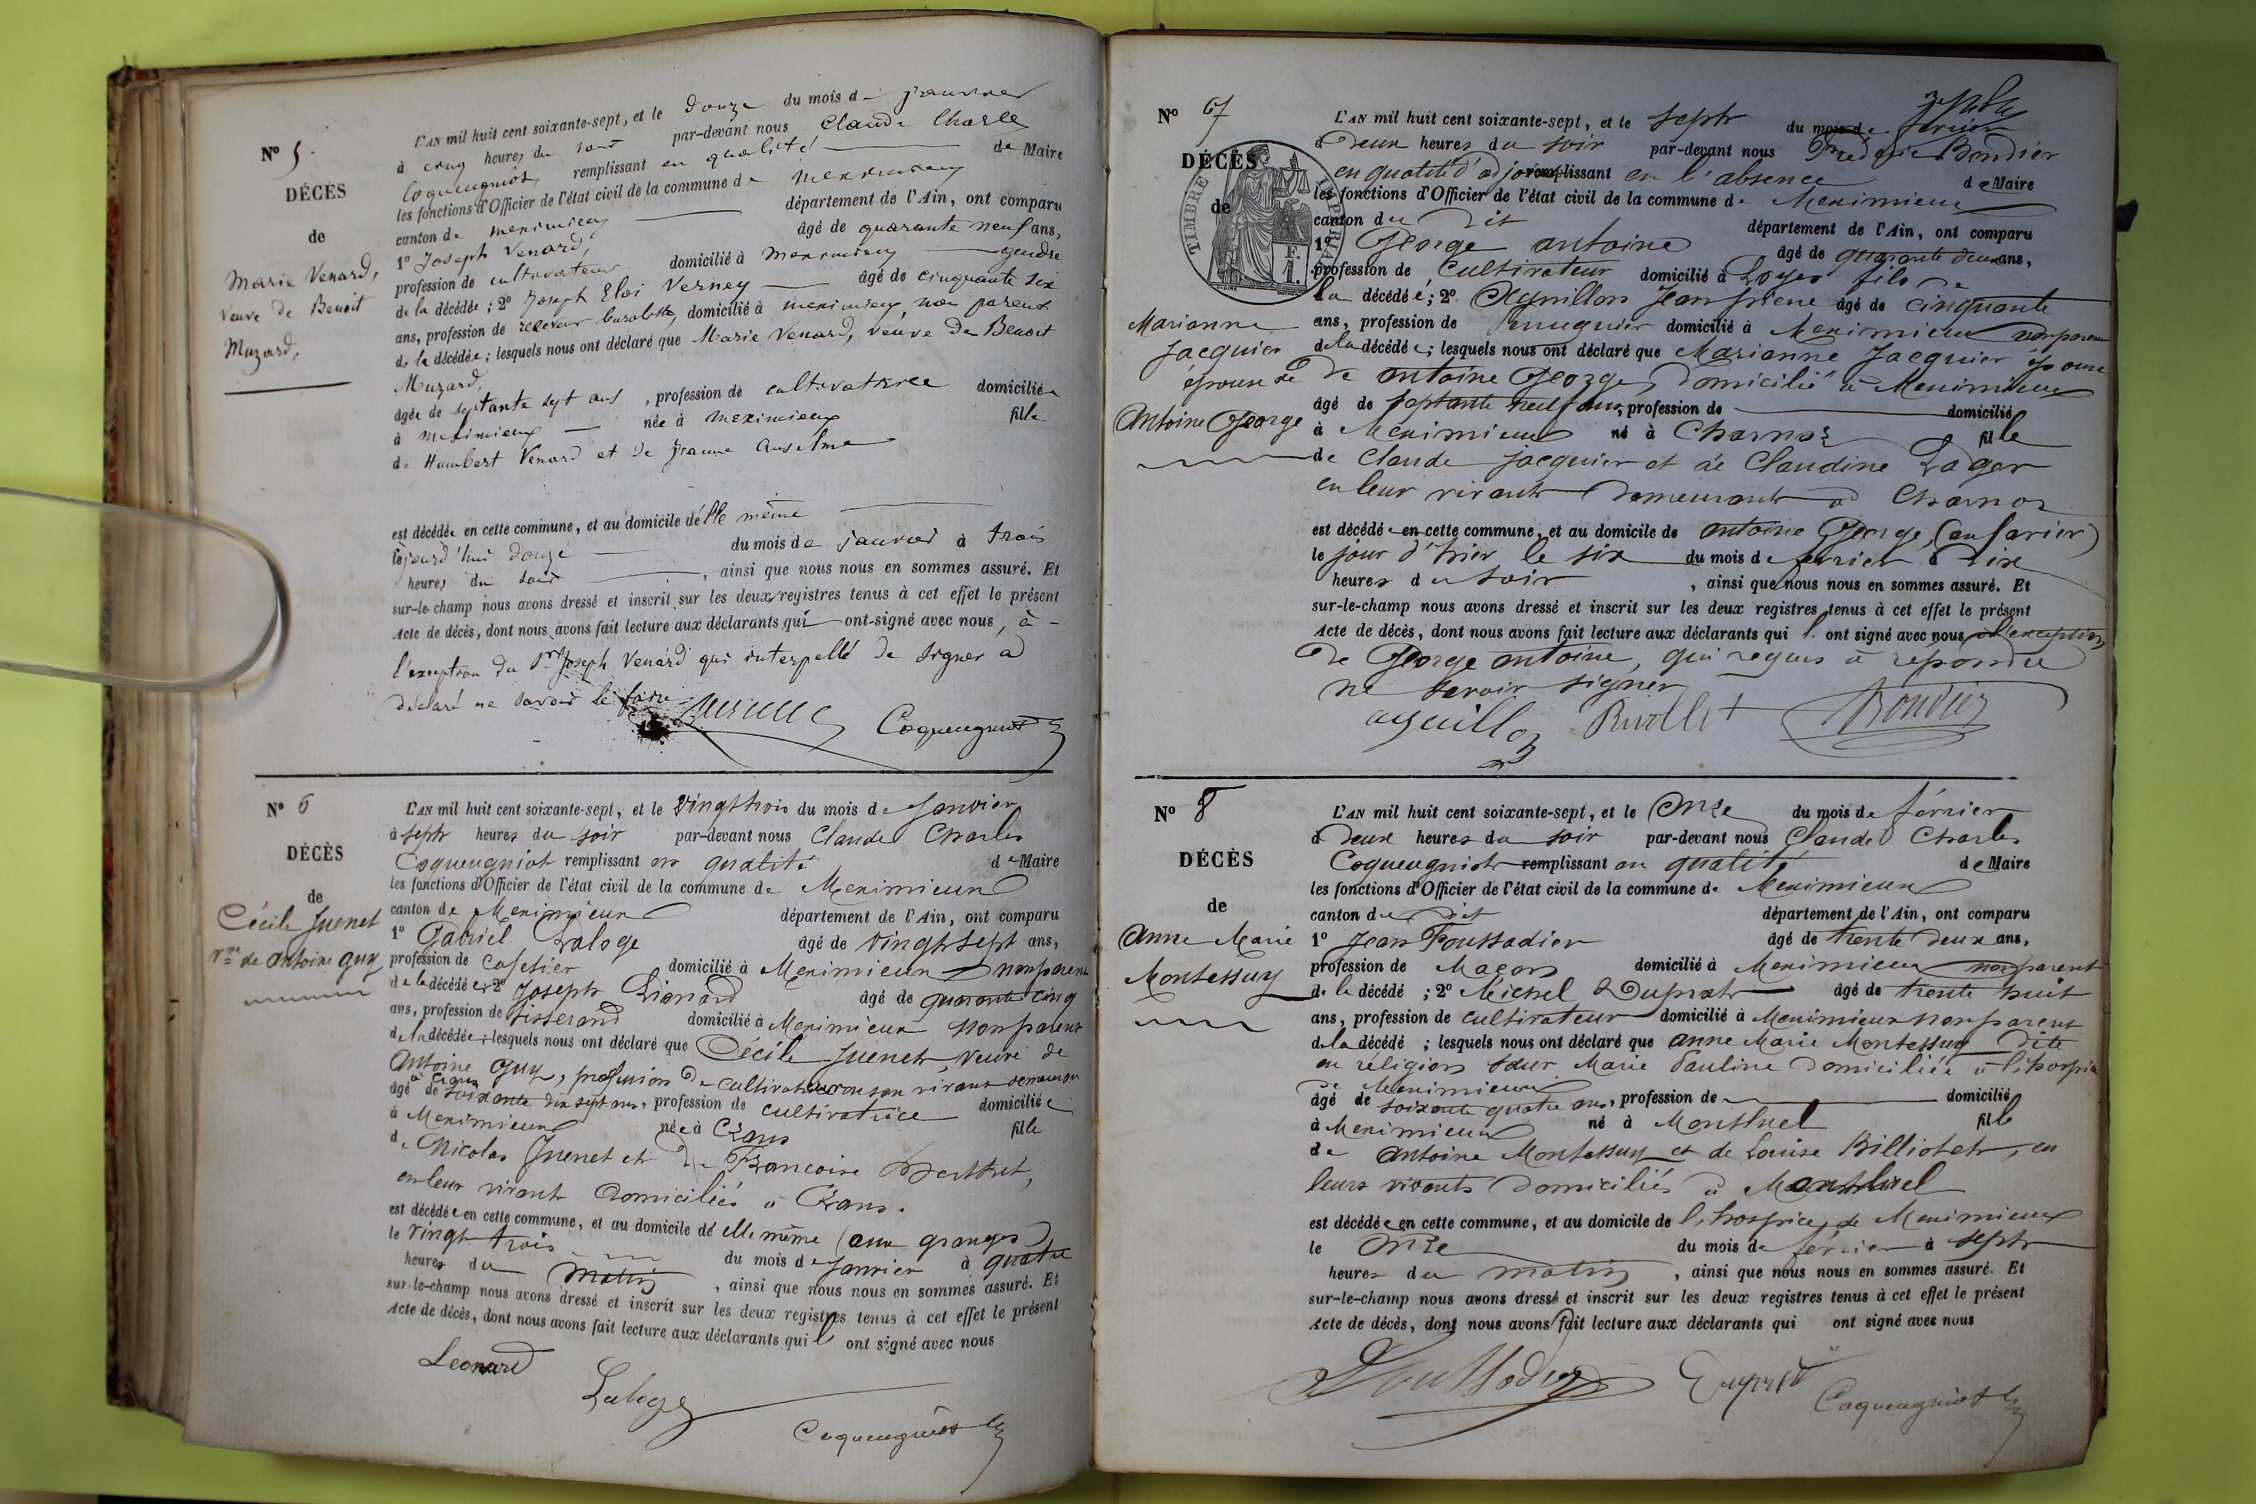 N° 5.
DÉCÈS
de
Marie Venard,
veuve de Benoit
Muzard,
L'AN mil huit cent soixante-sept, et le Douze du mois de janvier
à cinq heures du soir par-devant nous Claude Charles
Coqueugniot, remplissant en qualité de Maire
les fonctions d'Officier de l'état civil de la commune de meximieux
canton de meximieux département de l'Ain, ont comparu
1° Joseph Venard âgé de quarante neuf ans,
profession de cultivateur domicilié à meximieux gendre
de la décédée ; 2° Joseph Eloi Verney âgé de cinquante six
ans, profession de receveur buraliste, domicilié à meximieux, non parent
de la décédée ; lesquels nous ont déclaré que Marie Venard, veuve de Benoit
Muzard,
âgée de septante sept ans, profession de cultivatrice domiciliée
à meximieux née à meximieux fille
de Humbert Venard et de Jeanne Anselme
est décédée en cette commune, et au domicile d'elle même
le jourd'hui douze du mois de janvier à trois
heures du soir, ainsi que nous nous en sommes assuré. Et
sur-le-champ nous avons dressé et inscrit sur les deux registres tenus à cet effet le présent
Acte de décès, dont nous avons fait lecture aux déclarants qui ont signé avec nous, à
l'exception du Sr Joseph Venard qui interpellé de signer a
déclaré ne savoir le faire
Coqueugniot
N° 6
DÉCÈS
de
Cécile Juenet
Vve de Antoine Guy
L'AN mil huit cent soixante-sept, et le Vingt trois du mois de Janvier
à sept heures du soir par-devant nous Claude Charles
Coqueugniot remplissant en qualité de Maire
les fonctions d'Officier de l'état civil de la commune de Meximieux
canton de Meximieux département de l'Ain, ont comparu
1° Gabriel Laloge âgé de vingt sept ans,
profession de Cafetier domicilié à Meximieux non parent
de la décédée ; 2° Joseph Lionard âgé de quarante cinq
ans, profession de tisserand domicilié à Meximieux non parent
de la décédée ; lesquels nous ont déclaré que Cécile Juenet, veuve de
Antoine Guy, profession de cultivateur en son vivant demeurant
à Crans
âgé de soixante dix sept ans, profession de cultivatrice domiciliée
à Meximieux née à Crans fille
de Nicolas Juenet et de Francoise Berthet,
en leur vivant domiciliés à Crans.
est décédée en cette commune, et au domicile de elle même (aux granges)
le vingt trois du mois de Janvier à quatre
heures du matin, ainsi que nous nous en sommes assuré. Et
sur-le-champ nous avons dressé et inscrit sur les deux registres tenus à cet effet le présent
Acte de décès, dont nous avons fait lecture aux déclarants qui ont signé avec nous
Leonard
Laloge
Coqueugniot
N° 7
DÉCÈS
de
TIMBRE IMPÉRIAL
Marianne
Jacquier
épouse de
Antoine George
L'AN mil huit cent soixante-sept, et le sept du mois de février
à Deux heures du soir par-devant nous Frédéric Boudier
en qualité d'adjoint remplissant en l'absence de Maire
les fonctions d'Officier de l'état civil de la commune de Meximieux
canton du dit département de l'Ain, ont comparu
1° George antoine âgé de quarante deux ans,
profession de Cultivateur domicilié à Loyes fils de
la décédée ; 2° Aguillon Jean pierre âgé de cinquante
ans, profession de domicilié à Meximieux non parent
de la décédée ; lesquels nous ont déclaré que Marianne Jacquier épouse
de antoine George, domicilié à Meximieux
âgé de septante neuf ans, profession de domicilié
à Meximieux né à Charnoz fille
de Claude jacquier et de Claudine Lager
en leur vivant demeurant à Charnoz
est décédée en cette commune, et au domicile de antoine George,
le jour d'hier le six du mois de fevrier à Dix
heures du soir, ainsi que nous nous en sommes assuré. Et
sur-le-champ nous avons dressé et inscrit sur les deux registres tenus à cet effet le présent
Acte de décès, dont nous avons fait lecture aux déclarants qui ont signé avec nous à l'exception
de George antoine, qui requis a repondu
ne savoir signer
aguillon Ruollet Boudier
N° 8
DÉCÈS
de
Anne Marie
Montessuy
L'AN mil huit cent soixante-sept, et le Onze du mois de février
à Deux heures du soir par-devant nous Claude Charles
Coqueugniot remplissant en qualité de Maire
les fonctions d'Officier de l'état civil de la commune de Meximieux
canton du dit département de l'Ain, ont comparu
1° Jean Foussadier âgé de trente deux ans,
profession de Maçon domicilié à Meximieux non parent
de la décédé ; 2° Michel Duprat âgé de trente huit
ans, profession de cultivateur domicilié à Meximieux non parent
de la décédé ; lesquels nous ont déclaré que Anne Marie Montessuy dite
en réligion sœur Marie Pauline domiciliée à l'hospice
de Meximieux
âgé de soixante quatre ans, profession de domicilié
à Meximieux né à Montluel fille
de Antoine Montessuy et de Louise Billiotet, en
leurs vivants domiciliés à Montluel
est décédée en cette commune, et au domicile de l'hospice de Meximieux
le Onze du mois de février à sept
heures du matin, ainsi que nous nous en sommes assuré. Et
sur-le-champ nous avons dressé et inscrit sur les deux registres tenus à cet effet le présent
Acte de décès, dont nous avons fait lecture aux déclarants qui ont signé avec nous
Duprat
Coqueugniot